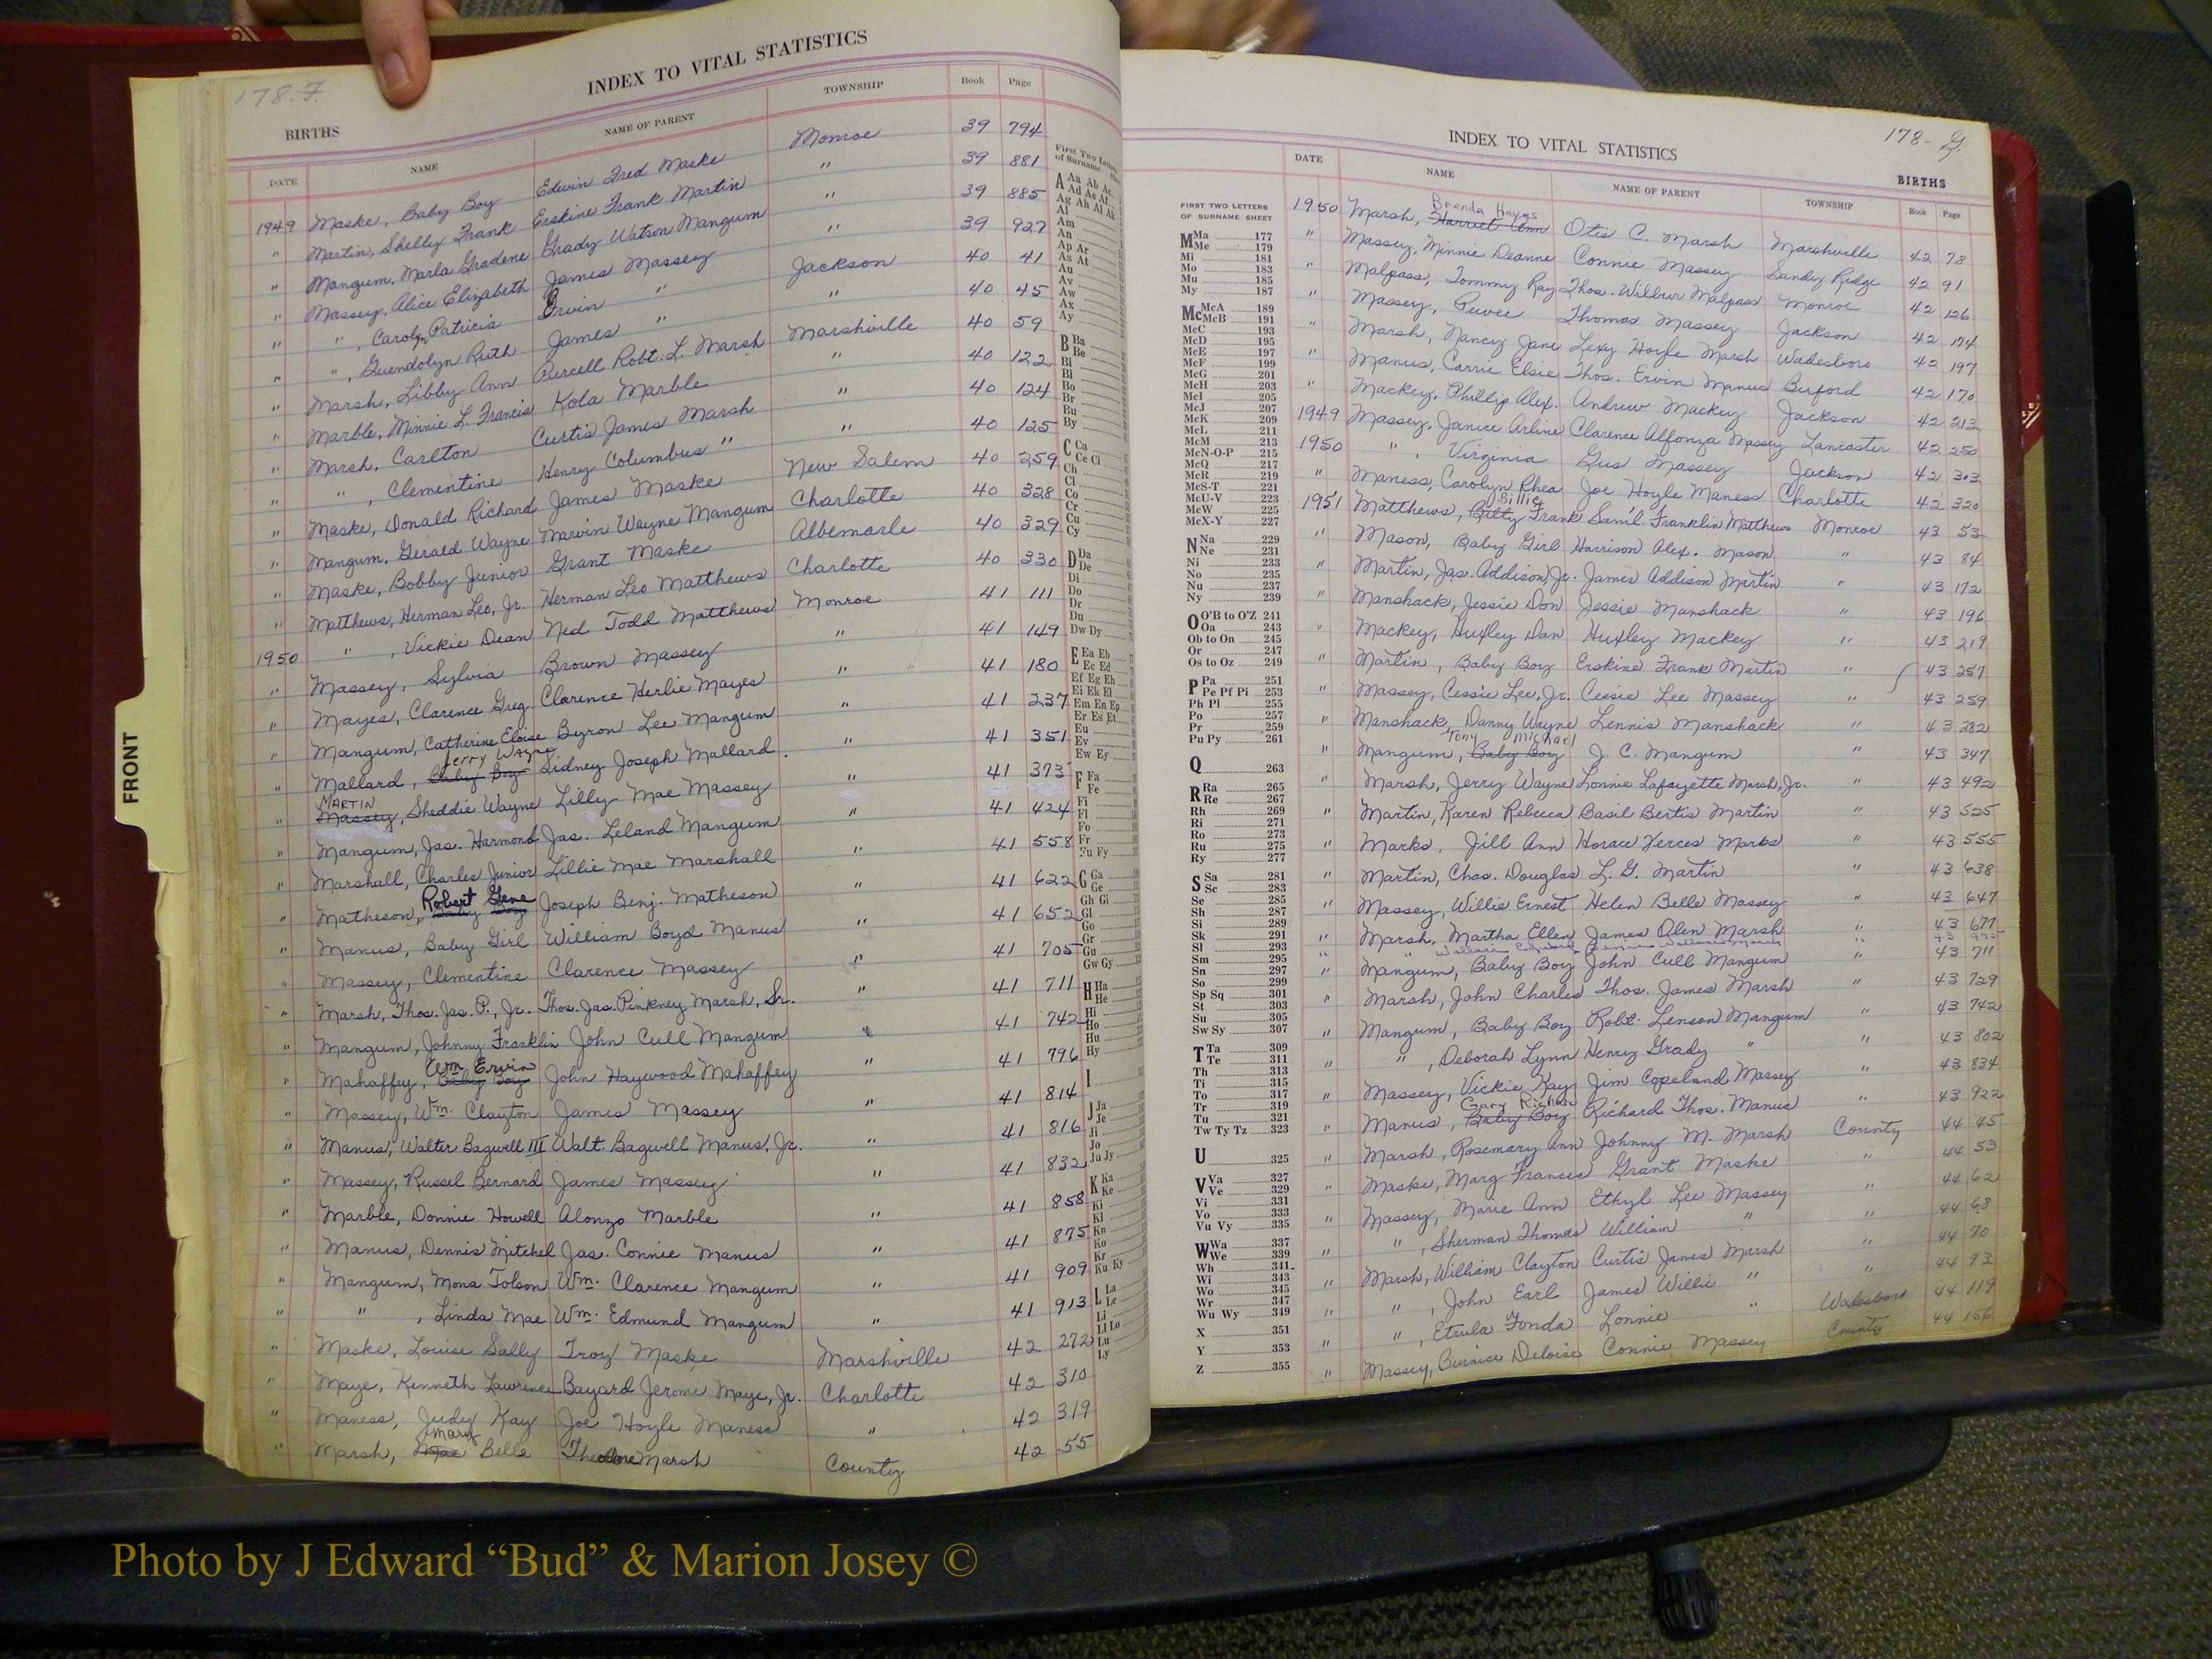 178-F.
INDEX TO VITAL STATISTICS
BIRTHS
DATE NAME NAME OF PARENT TOWNSHIP Book Page
1949 Maske, Baby Boy Edwin Fred Maske Monroe 39 794
" Martin, Shelly Frank Erskine Frank Martin " 39 881
" Mangum, Marla Gradene Grady Watson Mangum " 39 885
" Massey, Alice Elizabeth James Massey " 39 927
" " , Carolyn Patricia Ervin " Jackson 40 41
" " , Guendolyn Ruth James " " 40 45
" Marsh, Libby Ann Purcell Robt. L. Marsh Marshville 40 59
" Marble, Minnie L. Francis Kola Marble " 40 122
" Marsh, Carlton Curtis James Marsh " 40 124
" " , Clementine Henry Columbus " " 40 125
" Maske, Donald Richard James Maske New Salem 40 259
" Mangum, Gerald Wayne Marvin Wayne Mangum Charlotte 40 328
" Maske, Bobby Junior Grant Maske Albemarle 40 329
" Matthews, Herman Leo, Jr. Herman Leo Matthews Charlotte 40 330
1950 " , Vickie Dean Ned Todd Matthews Monroe 41 111
" Massey, Sylvia Brown Massey " 41 149
" Mayes, Clarence Greg Clarence Herlie Mayes " 41 180
" Mangum, Catherine Eloise Byron Lee Mangum " 41 237
Jerry Wayne
" Mallard, Baby Boy Sidney Joseph Mallard " 41 351
MARTIN
" Massey, Sheddie Wayne Lilly Mae Massey " 41 373
" Mangum, Jas. Harmond Jas. Leland Mangum " 41 424
" Marshall, Charles Junior Lillie Mae Marshall " 41 558
Robert Gene
" Matheson, Baby Boy Joseph Benj. Matheson " 41 622
" Manus, Baby Girl William Boyd Manus " 41 652
" Massey, Clementine Clarence Massey " 41 705
" Marsh, Thos. Jas. P., Jr. Thos. Jas. Pinkney Marsh, Sr. " 41 711
" Mangum, Johnny Franklin John Cull Mangum " 41 742
Wm Ervin
" Mahaffey, Baby Boy John Haywood Mahaffey " 41 796
" Massey, Wm. Clayton James Massey " 41 814
" Manus, Walter Bagwell III Walt. Bagwell Manus, Jr. " 41 816
" Massey, Russel Bernard James Massey " 41 832
" Marble, Donnie Howell Alonzo Marble " 41 858
" Manus, Dennis Mitchel Jas. Connie Manus " 41 875
" Mangum, Mona Tolson Wm. Clarence Mangum " 41 909
" " , Linda Mae Wm. Edmund Mangum " 41 913
" Maske, Louise Sally Troy Maske Marshville 42 272
" Maye, Kenneth Lawrence Bayard Jerome Maye, Jr. Charlotte 42 310
" Maness, Judy Kay Joe Hoyle Maness " 42 319
Mary
" Marsh, Mae Belle Theodore Marsh County 42 55
FRONT
First Two Letters
of Surname
A Aa Ab Ac
Ad Ae Af
Ag Ah Ai Ak
Al
Am
An
Ap Ar
As At
Au
Av
Aw
Ax
Ay
B Ba
Be
Bi
Bl
Bo
Br
Bu
By
C Ca
Ce Ci
Ch
Cl
Co
Cr
Cu
Cy
D Da
De
Di
Do
Dr
Du
Dw Dy
E Ea Eb
Ec Ed
Ef Eg Eh
Ei Ek El
Em En Ep
Er Es Et
Eu
Ev
Ew Ey
F Fa
Fe
Fi
Fl
Fo
Fr
Fu Fy
G Ga
Ge
Gh Gi
Gl
Go
Gr
Gu
Gw Gy
H Ha
He
Hi
Ho
Hu
Hy
I
J Ja
Je
Ji
Jo
Ju Jy
K Ka
Ke
Ki
Kl
Kn
Ko
Kr
Ku Ky
L La
Le
Li
Ll Lo
Lu
Ly
178-G.
INDEX TO VITAL STATISTICS
BIRTHS
DATE NAME NAME OF PARENT TOWNSHIP Book Page
FIRST TWO LETTERS
OF SURNAME SHEET
M Ma 177
Me 179
Mi 181
Mo 183
Mu 185
My 187
Mc McA 189
McB 191
McC 193
McD 195
McE 197
McF 199
McG 201
McH 203
McI 205
McJ 207
McK 209
McL 211
McM 213
McN-O-P 215
McQ 217
McR 219
McS-T 221
McU-V 223
McW 225
McX-Y 227
N Na 229
Ne 231
Ni 233
No 235
Nu 237
Ny 239
O O'B to O'Z 241
Oa 243
Ob to On 245
Or 247
Os to Oz 249
P Pa 251
Pe Pf Pi 253
Ph Pl 255
Po 257
Pr 259
Pu Py 261
Q 263
R Ra 265
Re 267
Rh 269
Ri 271
Ro 273
Ru 275
Ry 277
S Sa 281
Sc 283
Se 285
Sh 287
Si 289
Sk 291
Sl 293
Sm 295
Sn 297
So 299
Sp Sq 301
St 303
Su 305
Sw Sy 307
T Ta 309
Te 311
Th 313
Ti 315
To 317
Tr 319
Tu 321
Tw Ty Tz 323
U 325
V Va 327
Ve 329
Vi 331
Vo 333
Vu Vy 335
W Wa 337
We 339
Wh 341
Wi 343
Wo 345
Wr 347
Wu Wy 349
X 351
Y 353
Z 355
Brenda Hayes
1950 Marsh, Harriet Ann Otis C. Marsh Marshville 42 78
" Massey, Minnie Deanne Connie Massey Sandy Ridge 42 91
" Malpass, Tommy Ray Thos. Wilbur Malpass Monroe 42 126
" Massey, Pewee Thomas Massey Jackson 42 174
" Marsh, Nancy Jane Lexy Hoyle Marsh Wadesboro 42 197
" Manus, Carrie Elsie Thos. Ervin Manus Buford 42 170
" Mackey, Phillip Alex. Andrew Mackey Jackson 42 213
1949 Massey, Janice Arline Clarence Alfonza Massey Lancaster 42 250
1950 " , Virginia Gus Massey Jackson 42 303
" Maness, Carolyn Rhea Joe Hoyle Maness Charlotte 42 320
Billie
1951 Matthews, Billy Frank Saml. Franklin Matthews Monroe 43 53
" Mason, Baby Girl Harrison Alex. Mason " 43 84
" Martin, Jas. Addison, Jr. James Addison Martin " 43 172
" Manshack, Jessie Don Jessie Manshack " 43 196
" Mackey, Huxley Dan Huxley Mackey " 43 219
" Martin, Baby Boy Erskine Frank Martin " 43 257
" Massey, Cessie Lee, Jr. Cessie Lee Massey " 43 259
" Manshack, Danny Wayne Lennis Manshack " 43 282
Tony Michael
" Mangum, Baby Boy J. C. Mangum " 43 347
" Marsh, Jerry Wayne Lonnie Lafayette Marsh, Jr. " 43 492
" Martin, Karen Rebecca Basil Bertis Martin " 43 525
" Marks, Jill Ann Horace Xerces Marks " 43 555
" Martin, Chas. Douglas L. G. Martin " 43 638
" Massey, Willie Ernest Helen Belle Massey " 43 647
" Marsh, Martha Ellen James Olen Marsh " 43 677
" Mangum, Baby Boy John Cull Mangum " 43 711
" Marsh, John Charles Thos. James Marsh " 43 729
" Mangum, Baby Boy Robt. Lenson Mangum " 43 742
" " , Deborah Lynn Henry Grady " " 43 802
" Massey, Vickie Kay Jim Copeland Massey " 43 834
Gary Richard
" Manus, Baby Boy Richard Thos. Manus " 43 922
" Marsh, Rosemary Ann Johnny M. Marsh County 44 45
" Maske, Mary Frances Grant Maske " 44 53
" Massey, Marie Ann Ethyl Lee Massey " 44 62
" " , Sherman Thomas William " " 44 68
" Marsh, William Clayton Curtis James Marsh " 44 70
" " , John Earl James Willie " " 44 93
" " , Etrula Fonda Lonnie " Wadesboro 44 119
" Massey, Burnice Deloise Connie Massey County 44 156
Photo by J Edward “Bud” & Marion Josey ©